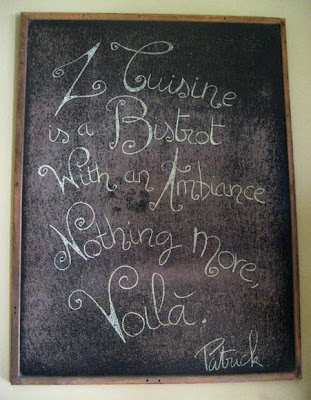 Z Cuisine
is a Bistrot
With an Ambiance
Nothing More,
Voilà.
Patrick